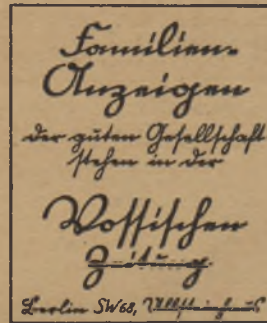 Familien-
Anzeigen
der guten Gesellschaft
stehen in der
Vossischen
Zeitung.
Berlin SW68, Ullsteinhaus